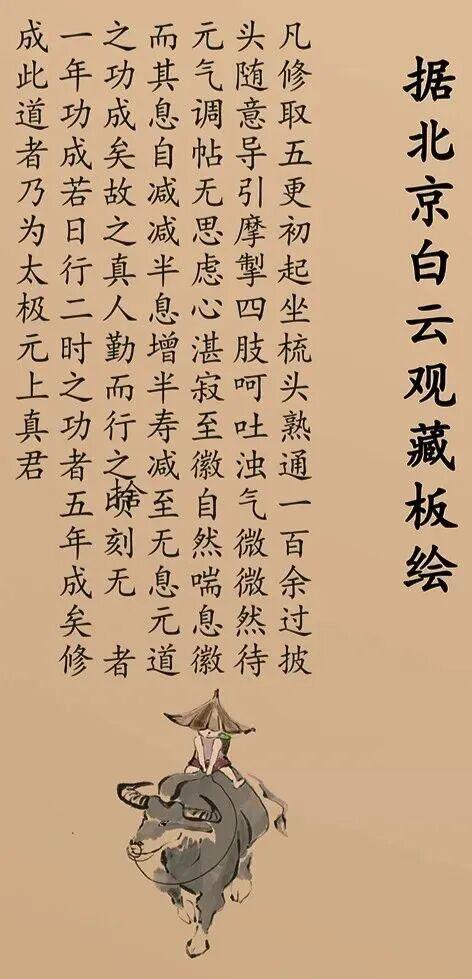 据北京白云观藏板绘
凡修取五更初起坐梳头熟通一百余过披
头随意导引摩掣四肢呵吐浊气微微然待
元气调帖无思虑心湛寂至徽自然喘息徽
而其息自减减半息增半寿减至无息元道
之功成矣故之真人勤而行之刻无 者
一年功成若日行二时之功者五年成矣修
成此道者乃为太极元上真君